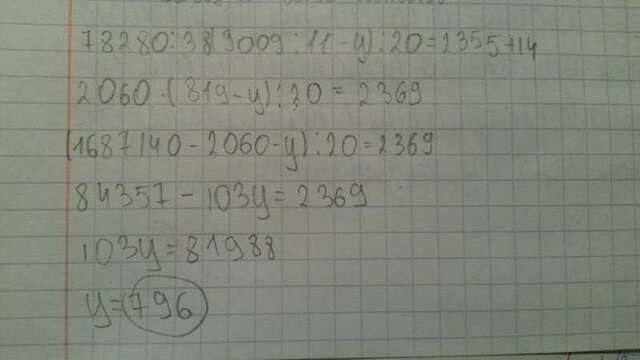 78280:38(9009:11-y):20=2355+14
2060·(819-y):20=2369
(1687140-2060·y):20=2369
84357-103y=2369
103y=81988
y=796